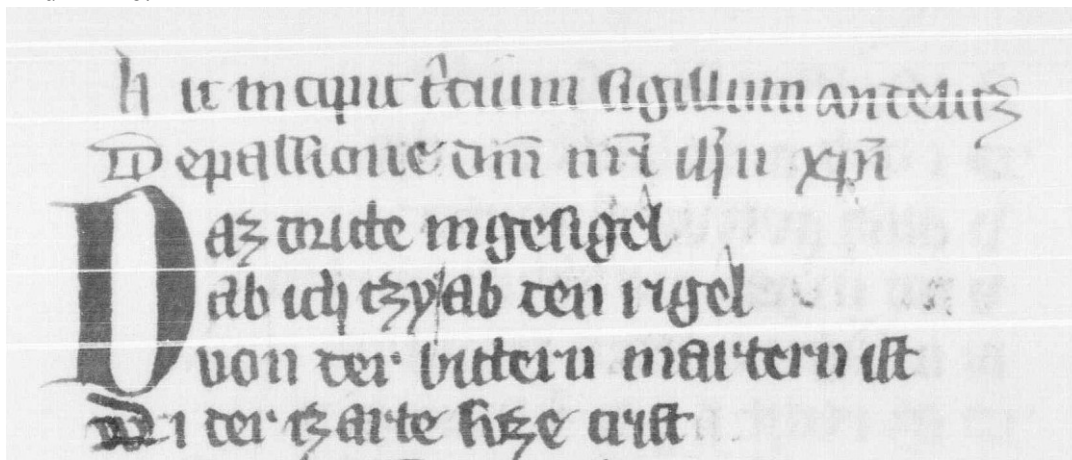 h ic incipit t̄cium sigillum apertu(m)
De passione dn̄i nr̄i ih̄u xp̄i
Daz dritte ingesigel
ab ich tzy ab den rigel
von der bittern martern ist
Di der tzarte hṫze crist